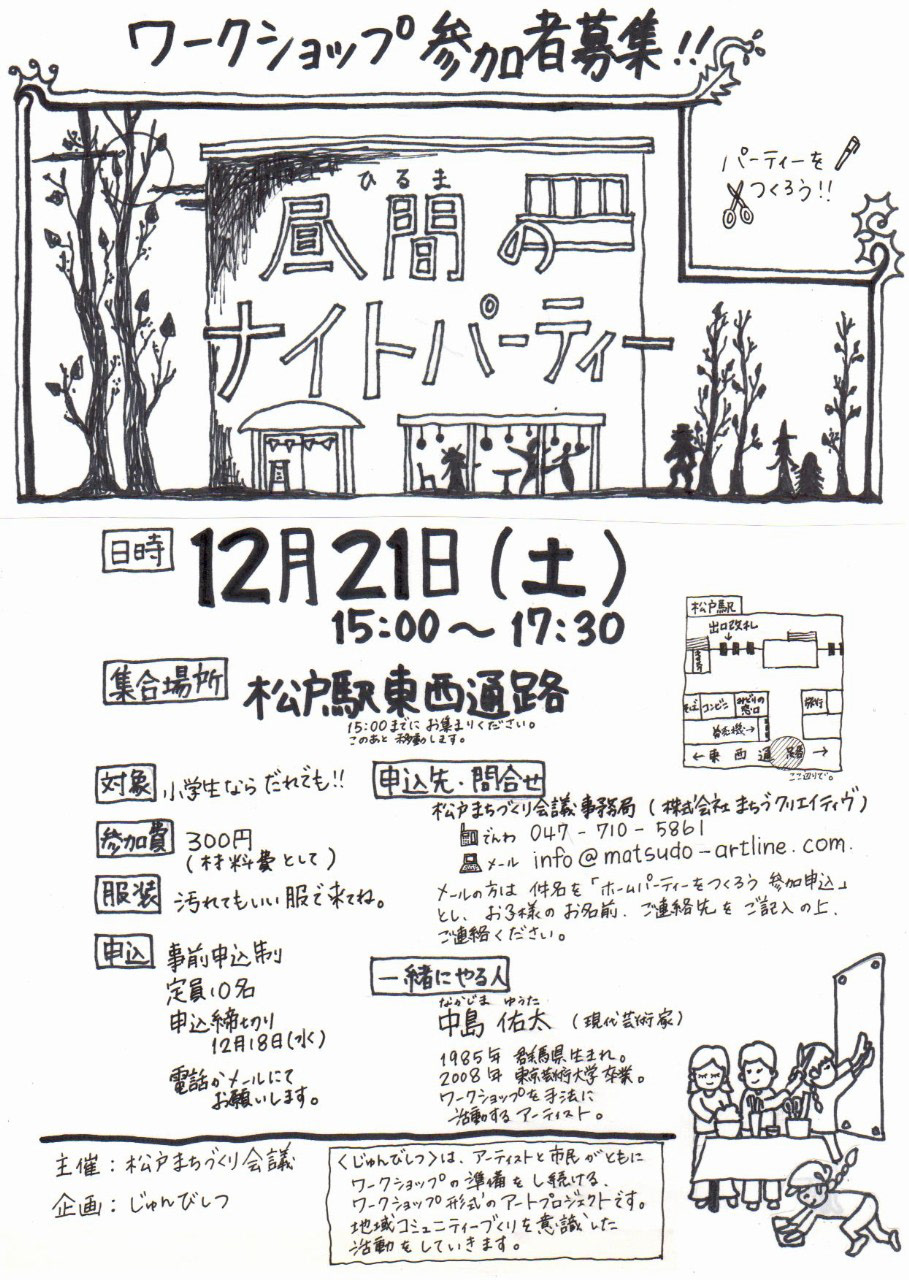 ワークショップ参加者募集!!
パーティーを
つくろう!!
ひるま
昼間の
ナイトパーティー
日時
12月21日(土)
15:00～17:30
集合場所
松戸駅東西通路
15:00までにお集まりください。
このあと移動します。
松戸駅
出口改札
そば
コンビニ
みどりの
窓口
旅行
券売機→
←東西通路→
ここ辺りで。
対象
小学生ならだれでも!!
参加費
300円
(材料費として)
服装
汚れてもいい服で来てね。
申込
事前申込制
定員10名
申込締切り
12月18日(水)
電話かメールにて
お願いします。
申込先・問合せ
松戸まちづくり会議事務局(株式会社まちづクリエイティヴ)
でんわ 047-710-5861
メール info@matsudo-artline.com.
メールの方は件名を「ホームパーティーをつくろう 参加申込」
とし、お子様のお名前、ご連絡先をご記入の上、
ご連絡ください。
一緒にやる人
なかじま ゆうた
中島 佑太 (現代芸術家)
1985年 群馬県生まれ。
2008年 東京芸術大学卒業。
ワークショップを手法に
活動するアーティスト。
主催:松戸まちづくり会議
企画:じゅんびしつ
〈じゅんびしつ〉は、アーティストと市民がともに
ワークショップの準備をし続ける、
ワークショップ形式のアートプロジェクトです。
地域コミュニティーづくりを意識した
活動をしていきます。